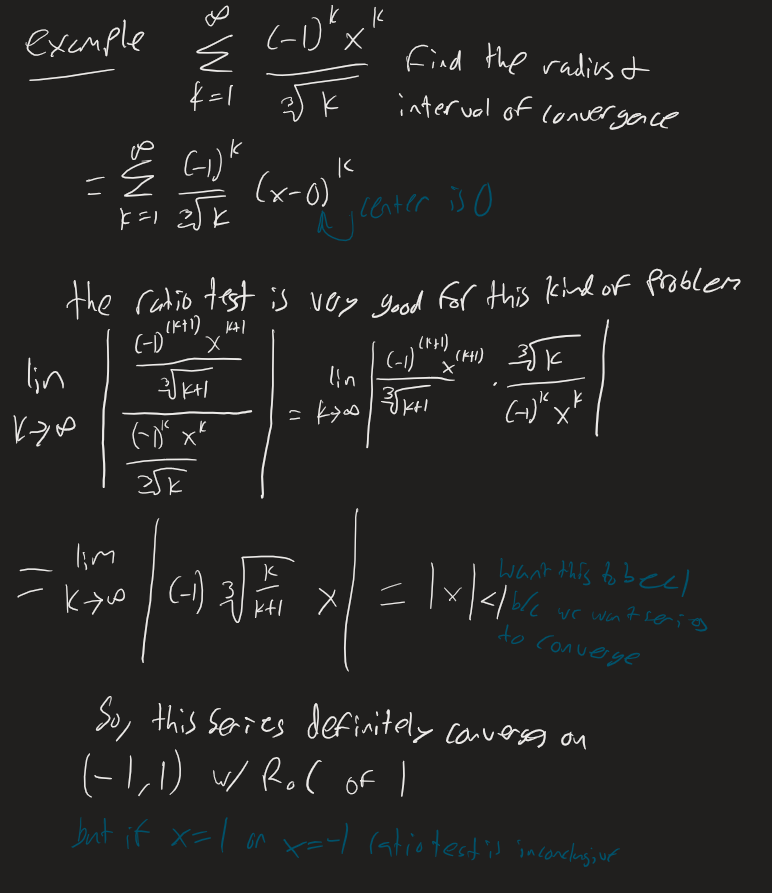 example ∞ Σ k=1 (-1)^k x^k / ∛k Find the radius &
interval of convergence
= ∞ Σ k=1 (-1)^k / ∛k (x-0)^k center is 0
the ratio test is very good for this kind of problem
lim k→∞ | ((-1)^(k+1) x^(k+1) / ∛(k+1)) / ((-1)^k x^k / ∛k) | = lim k→∞ | (-1)^(k+1) x^(k+1) / ∛(k+1) · ∛k / ((-1)^k x^k) |
= lim k→∞ | (-1) ∛(k/(k+1)) x | = |x| < 1
want this to be < 1
b/c we want series
to converge
So, this series definitely converges on
(-1, 1) w/ RoC of 1
but if x=1 or x=-1 ratio test is inconclusive